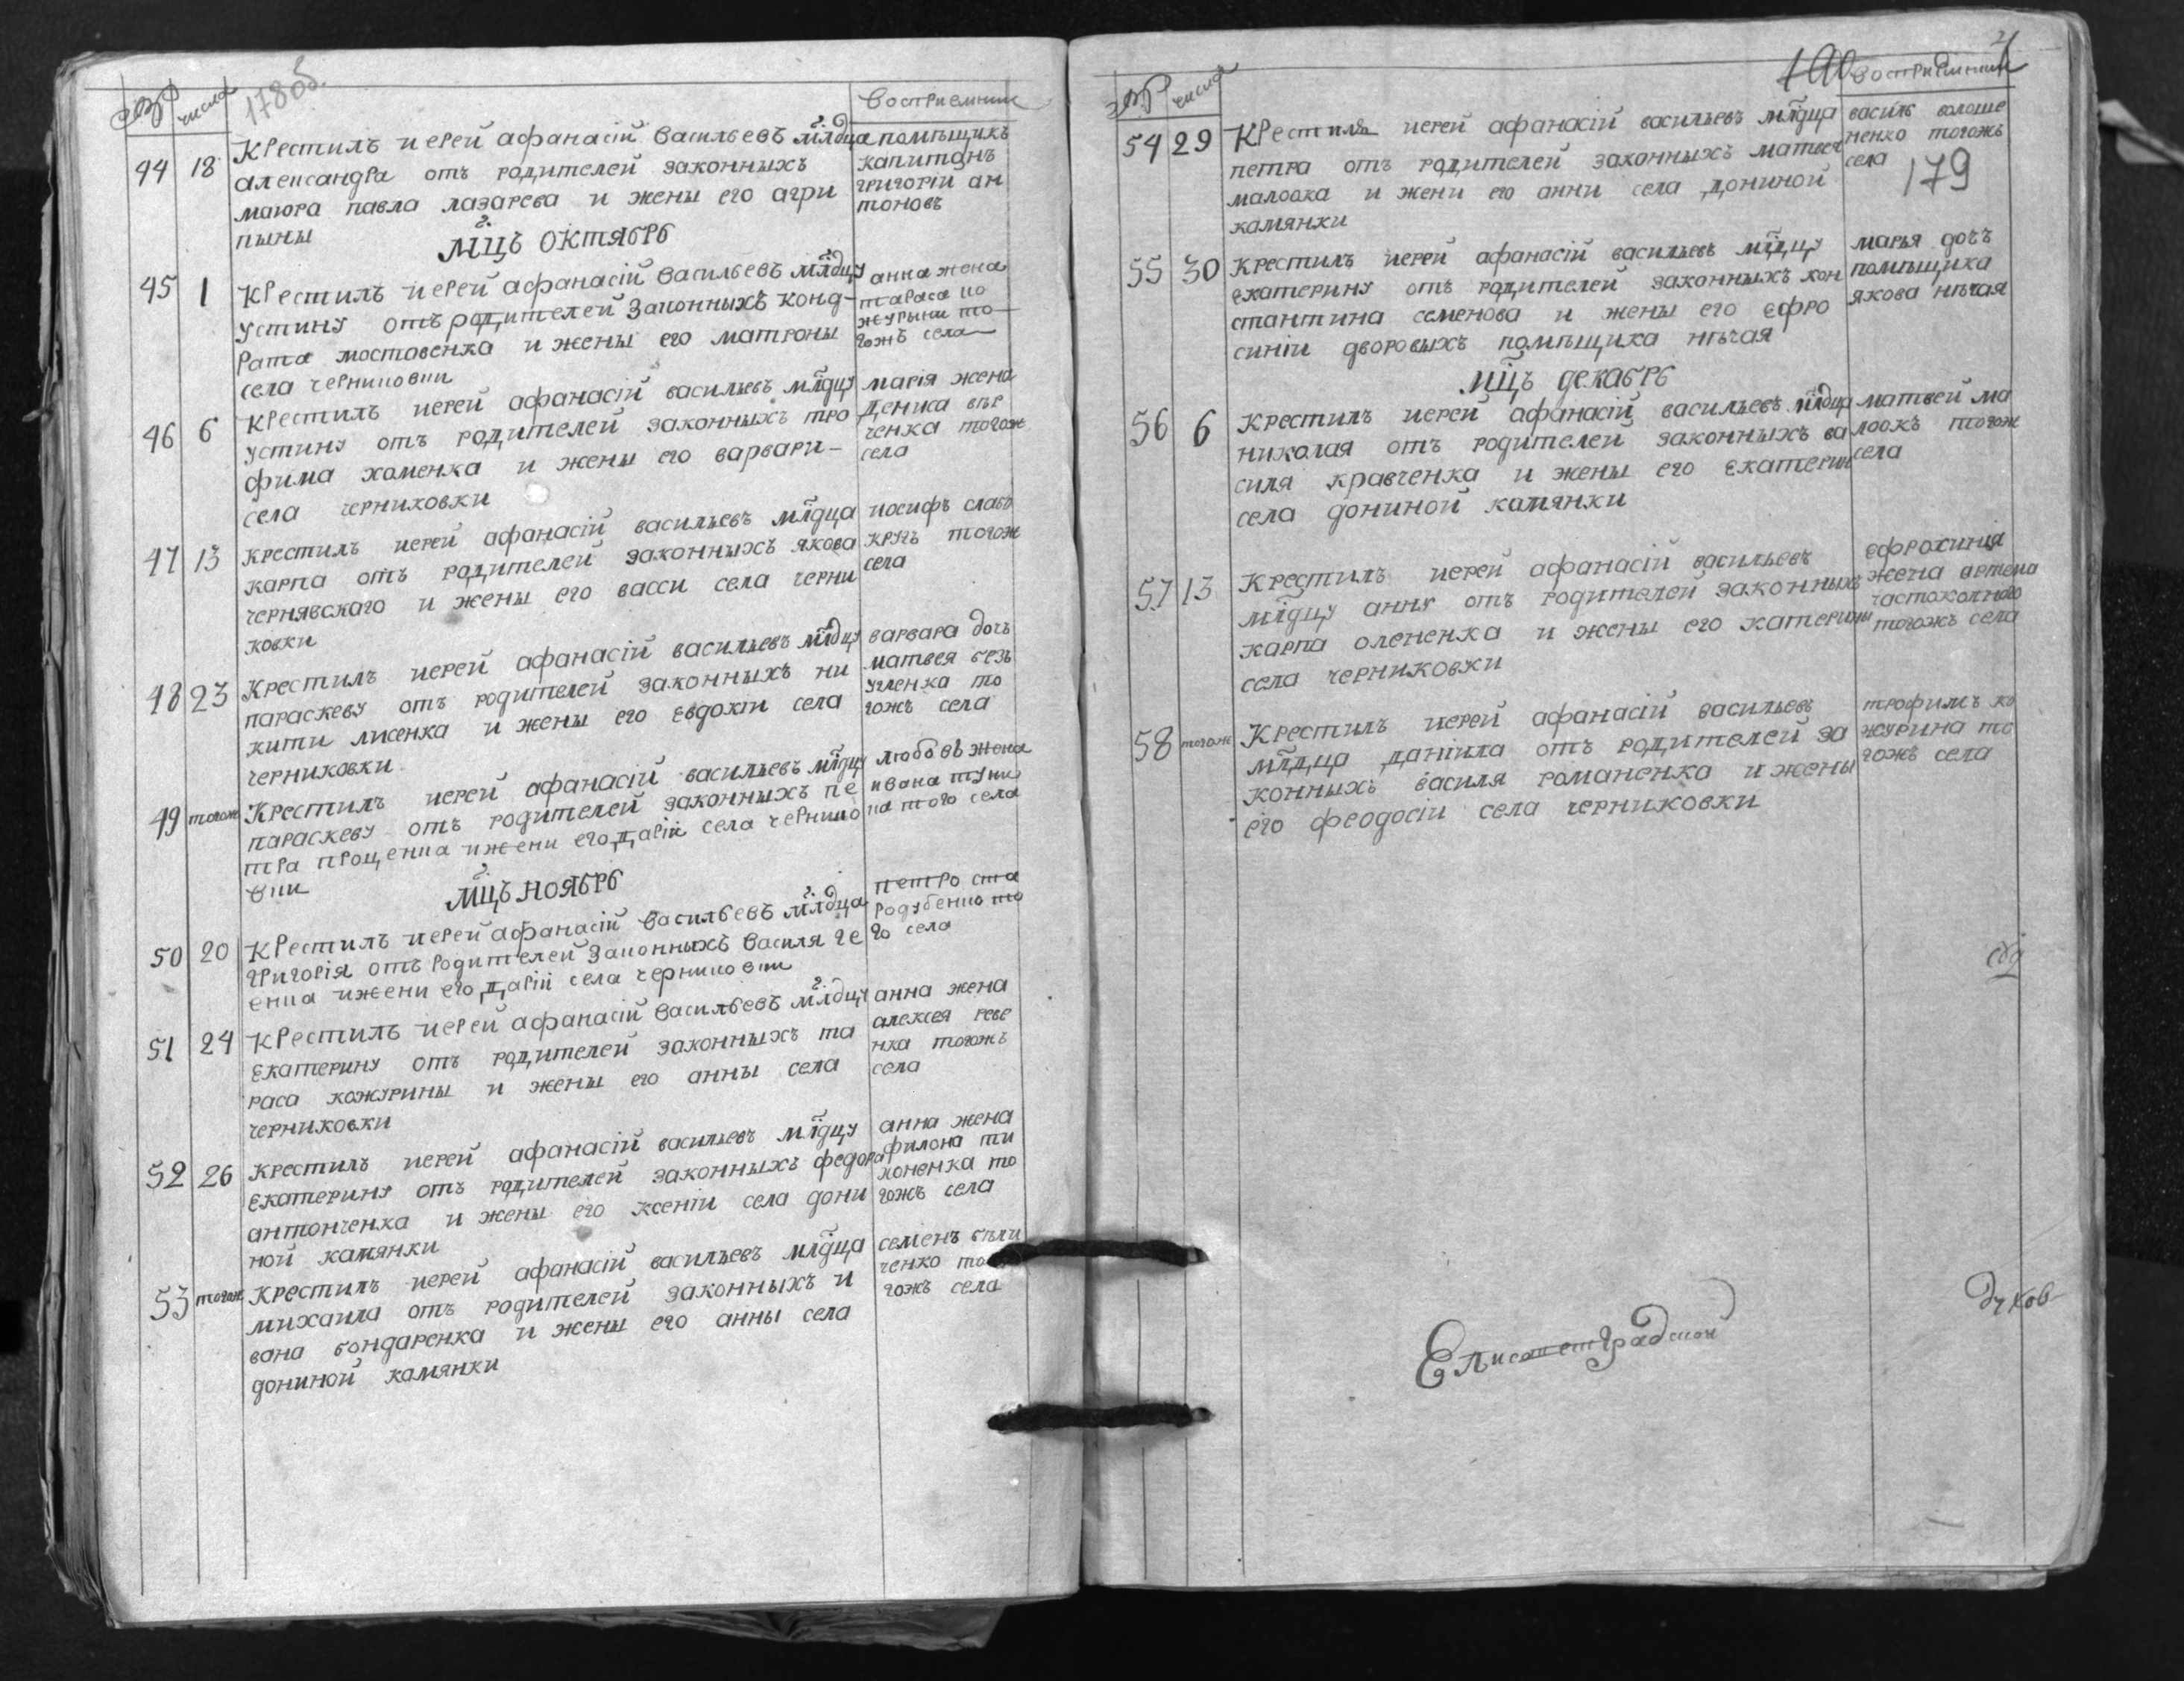 числа
178 об.
восприемники
44 18 Крестилъ иерей афанасій васильевъ млдца
александра отъ родителей законныхъ
маюра павла лазарева и жены его агри
пыны
помѣщикъ
капитанъ
григорій ан
тоновъ
мцъ октябрь
45 1 Крестилъ иерей афанасій васильевъ млдцу
устину отъ родителей законныхъ конд-
рата мостовенка и жены его матроны
села черниковки
анна жена
тараса ко
журыны то
гожъ села
46 6 Крестилъ иерей афанасій васильевъ млдцу
устину отъ родителей законныхъ тро
фима хоменка и жены его варвари-
села черниковки
марія жена
дениса
ченка тогож
села
47 13 Крестилъ иерей афанасій васильевъ млдца
карпа отъ родителей законныхъ якова
чернявскаго и жены его васси села черни
ковки
иосифъ слабо
кругъ тогож
села
48 23 Крестилъ иерей афанасій васильевъ млдцу
параскеву отъ родителей законныхъ ни
кити лисенка и жены его евдокіи села
черниковки
варвара дочь
матвея безъ
угленка то
гожъ села
49 тогож Крестилъ иерей афанасій васильевъ млдцу
параскеву отъ родителей законныхъ пе
тра прощенка и жени его даріи села чернико
вки
любовъ жена
ивана
па того села
мцъ ноябрь
50 20 Крестилъ иерей афанасій васильевъ млдца
григорія отъ родителей законныхъ василя ге
енка и жени его даріи села черниковки
петро ста
родубенко то
го села
51 24 Крестилъ иерей афанасій васильевъ млдцу
екатерину отъ родителей законныхъ та
раса кожурины и жены его анны села
черниковки
анна жена
алексея реве
нка тогожъ
села
52 26 Крестилъ иерей афанасій васильевъ млдцу
екатерину отъ родителей законныхъ федора
антонченка и жены его ксеніи села дони
ной камянки
анна жена
филона ти
хоненка то
гожъ села
53 тогож Крестилъ иерей афанасій васильевъ млдца
михаила отъ родителей законныхъ и
вана бондаренка и жены его анны села
дониной камянки
семенъ бѣли
ченко то
гожъ села
числа
190
восприемники
179
54 29 Крестилъ иерей афанасій васильевъ млдца
петра отъ родителей законныхъ матвея
малоока и жени его анни села дониной
камянки
василь волоше
ненко тогожъ
села
55 30 Крестилъ иерей афанасій васильевъ млдцу
екатерину отъ родителей законныхъ кон
стантина семенова и жены его ефро
синіи дворовыхъ помѣщика нѣчая
марья дочъ
помѣщика
якова нѣчая
мцъ декабрь
56 6 Крестилъ иерей афанасій васильевъ млдца
николая отъ родителей законныхъ ва
силя кравченка и жены его екатерин
села дониной камянки
матвей ма
лоокъ тогож
села
57 13 Крестилъ иерей афанасій васильевъ
млдцу анну отъ родителей законныхъ
карпа олененка и жены его катерини
села черниковки
ефросинія
жена артема
частоколного
тогожъ села
58 тогож Крестилъ иерей афанасій васильевъ
млдца даніила отъ родителей за
конныхъ василя романенка и жены
его феодосіи села черниковки
трофимъ ко
журина то
гожъ села
Елисаветградской
духов